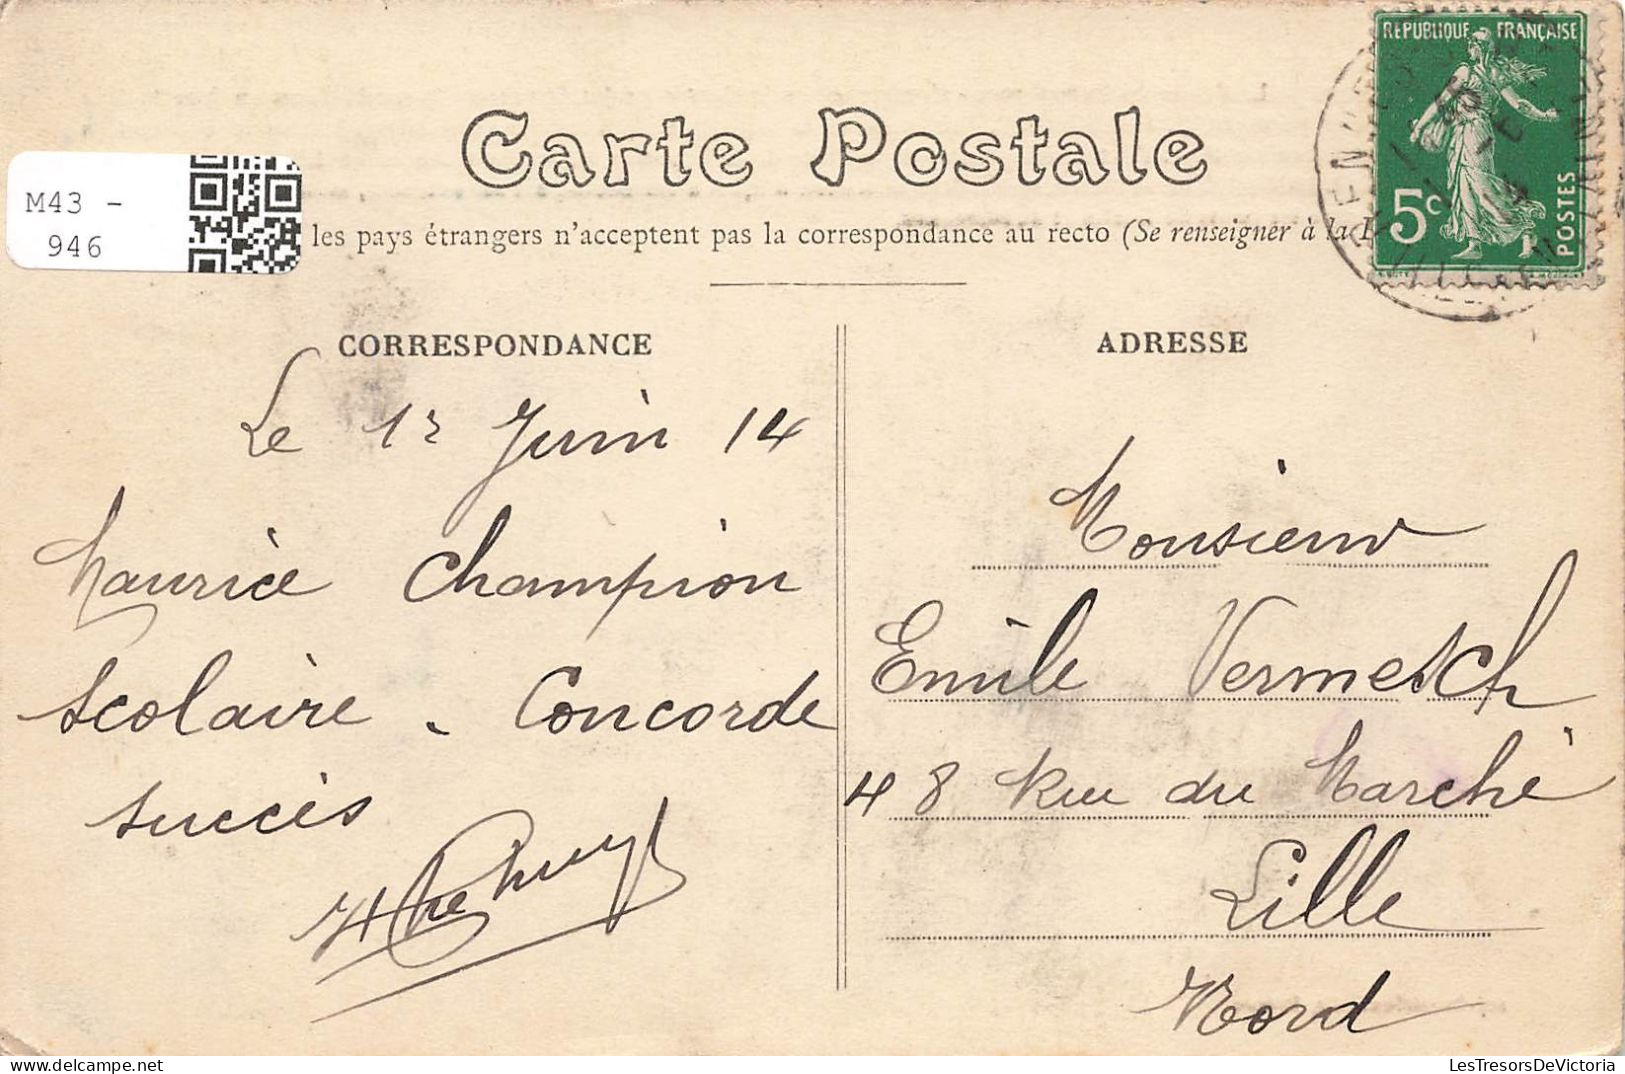 RÉPUBLIQUE FRANÇAISE
5c
POSTES
Carte Postale
M43 -
946
les pays étrangers n'acceptent pas la correspondance au recto (Se renseigner à la
CORRESPONDANCE
Le 12 Juin 14
Maurice Champion
Scolaire - Concorde
succès
ADRESSE
Monsieur
Emile Vermesch
48 Rue du Marché
Lille
Nord
LesTresorsDeVictoria